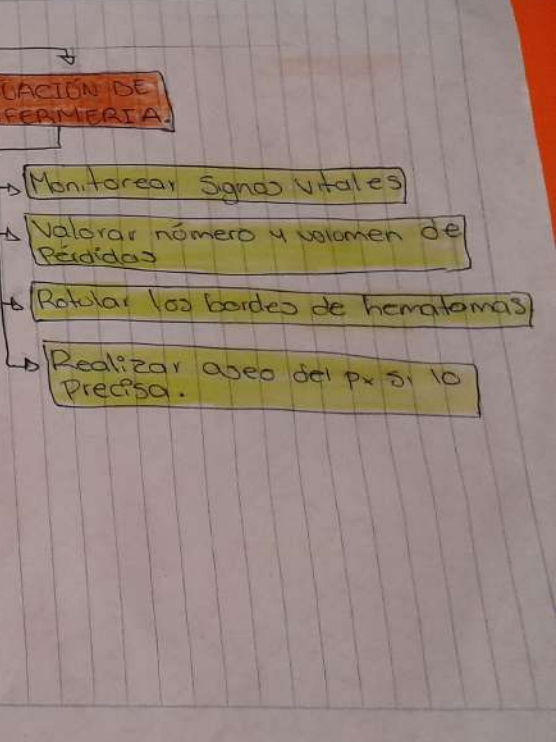 UACIÓN DE
FERMERIA.
Monitorear signos vitales
Valorar número y volumen de
Pérdidas
Rotular los bordes de hematomas
Realizar aseo del px si lo
Precisa.